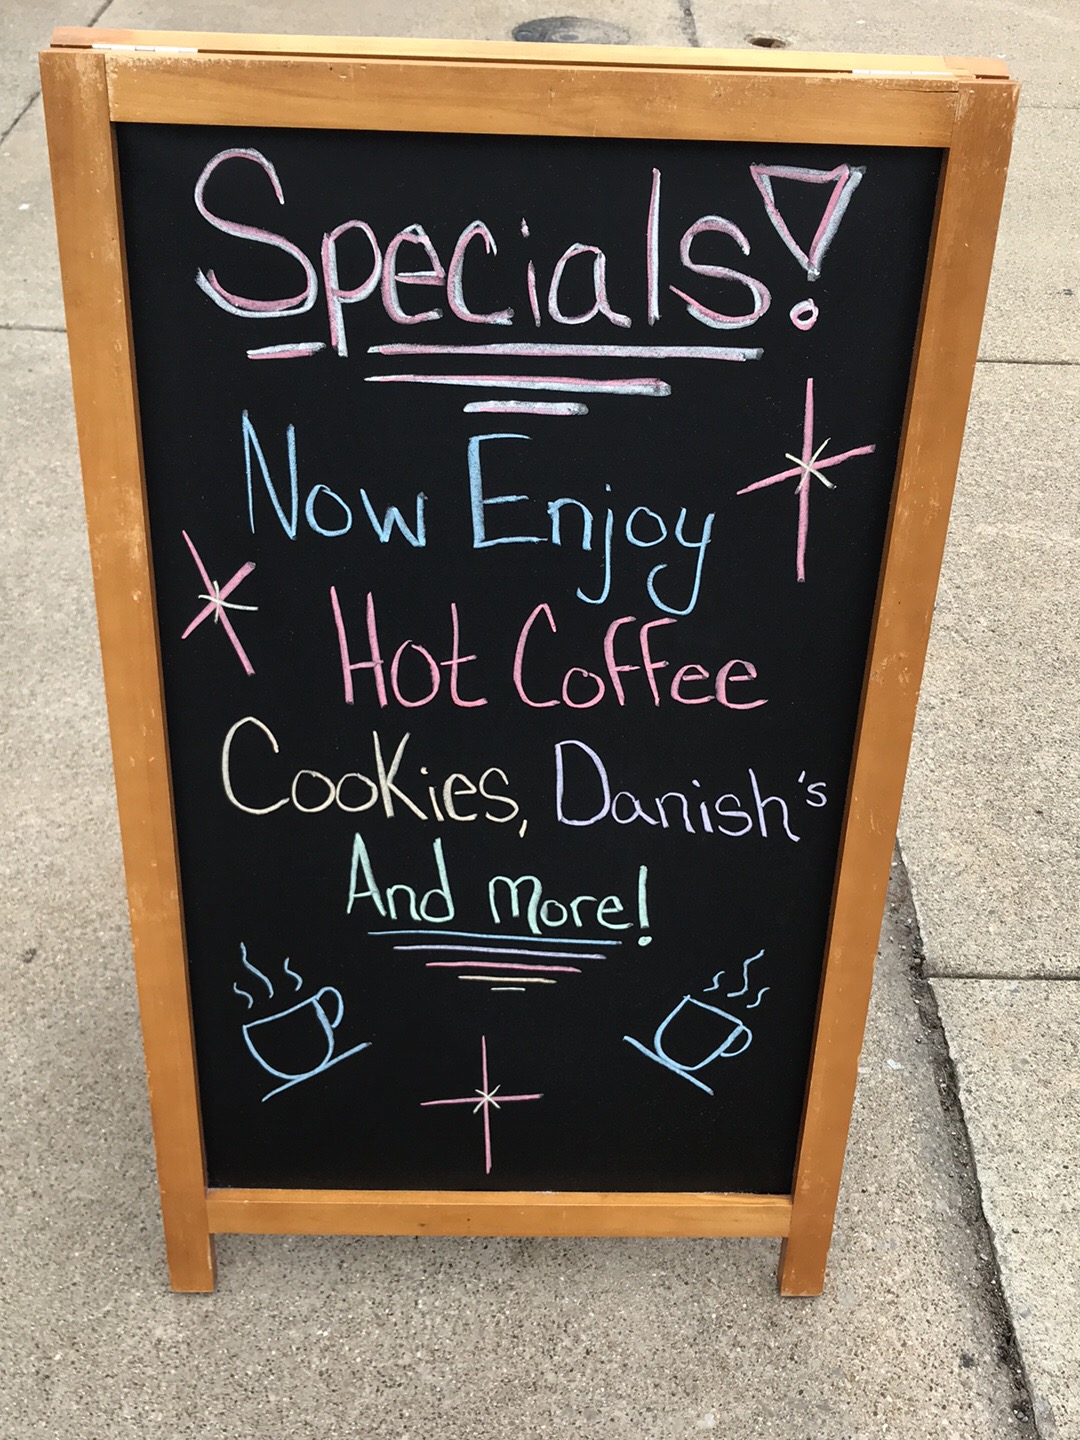 Specials!
Now Enjoy
Hot Coffee
Cookies, Danish's
And more!